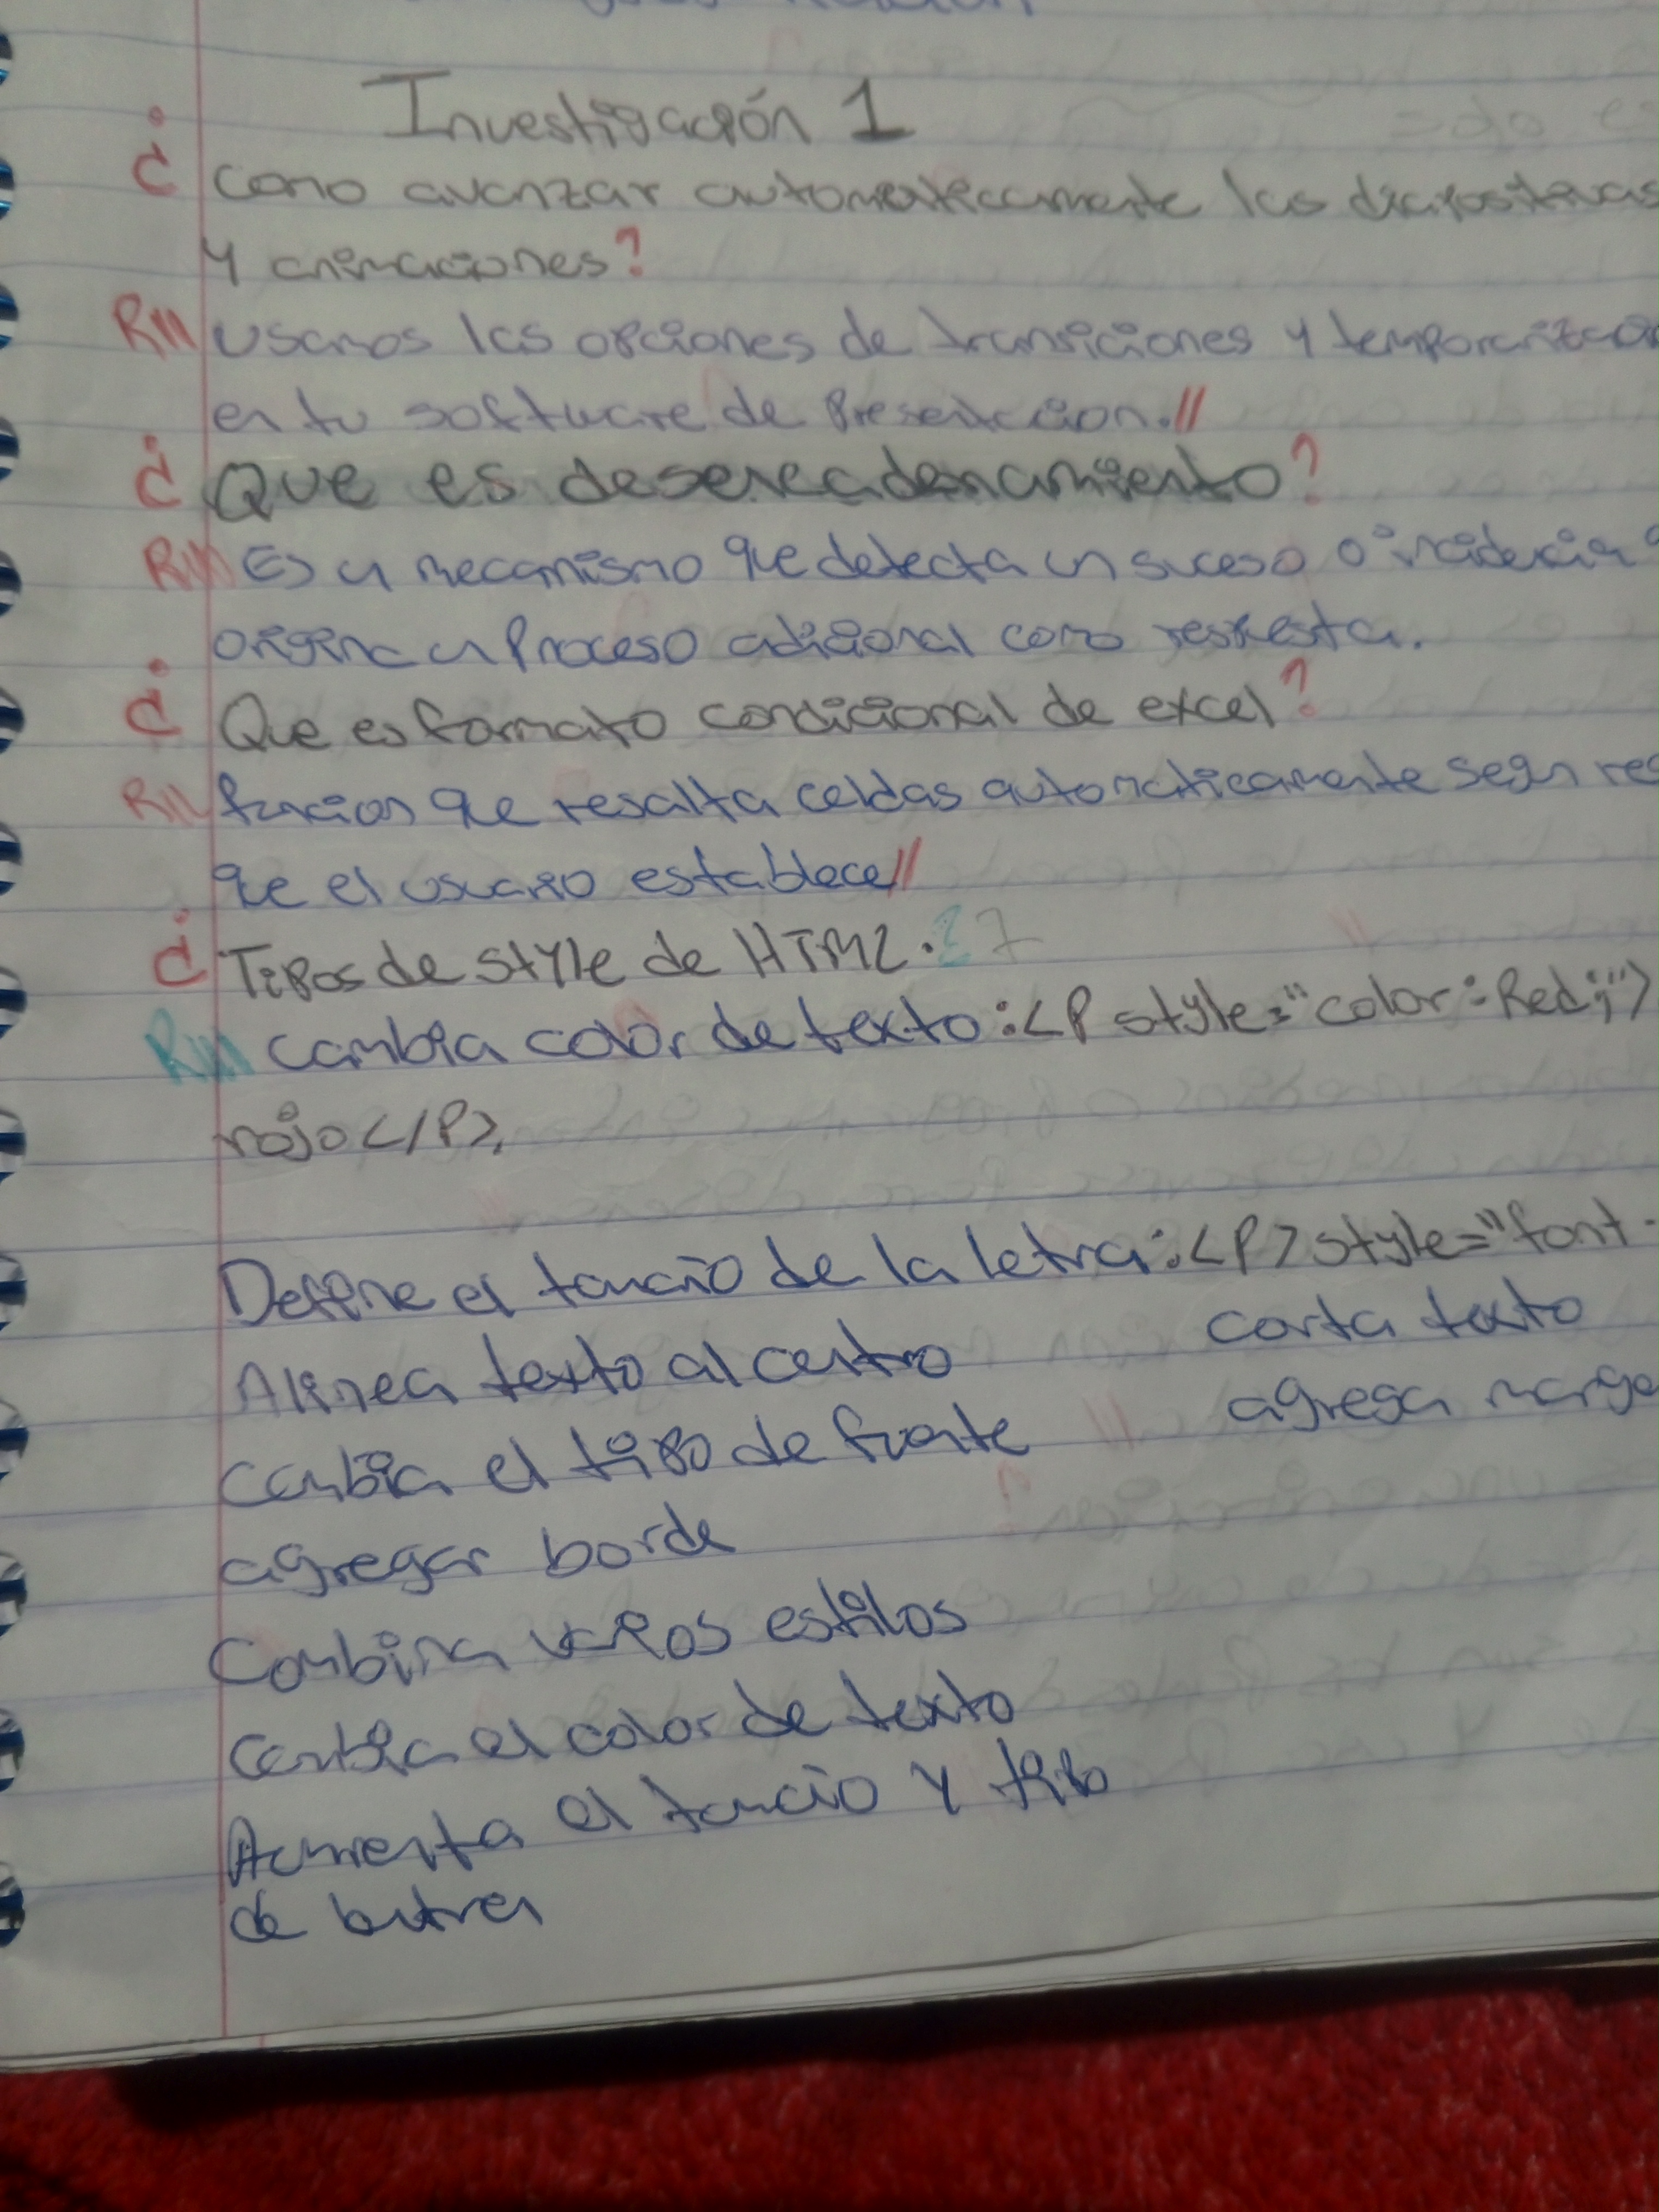 Investigación 1
¿ como avanzar automaticamente las diapositivas
y animaciones?
R// usamos las opciones de transiciones y
en tu software de Presentacion.//
¿ Que es desencadenamiento?
R// Es un mecanismo que detecta un suceso o incidencia
origina un Proceso adicional como respuesta.
¿ Que es formato condicional de excel?
R// funcion que resalta celdas automaticamente segun
que el usuario establece//
¿ Tipos de style de HTML. ?
R// cambia color de texto:<P style="color:Red;">
rojo</P>,
Define el tamaño de la letra:<P>style="font-
Alinea texto al centro
corta texto
cambia el tipo de fuente
agrega
agregar borde
Combina varios estilos
cambia el color de texto
Aumenta el tamaño y tipo
de